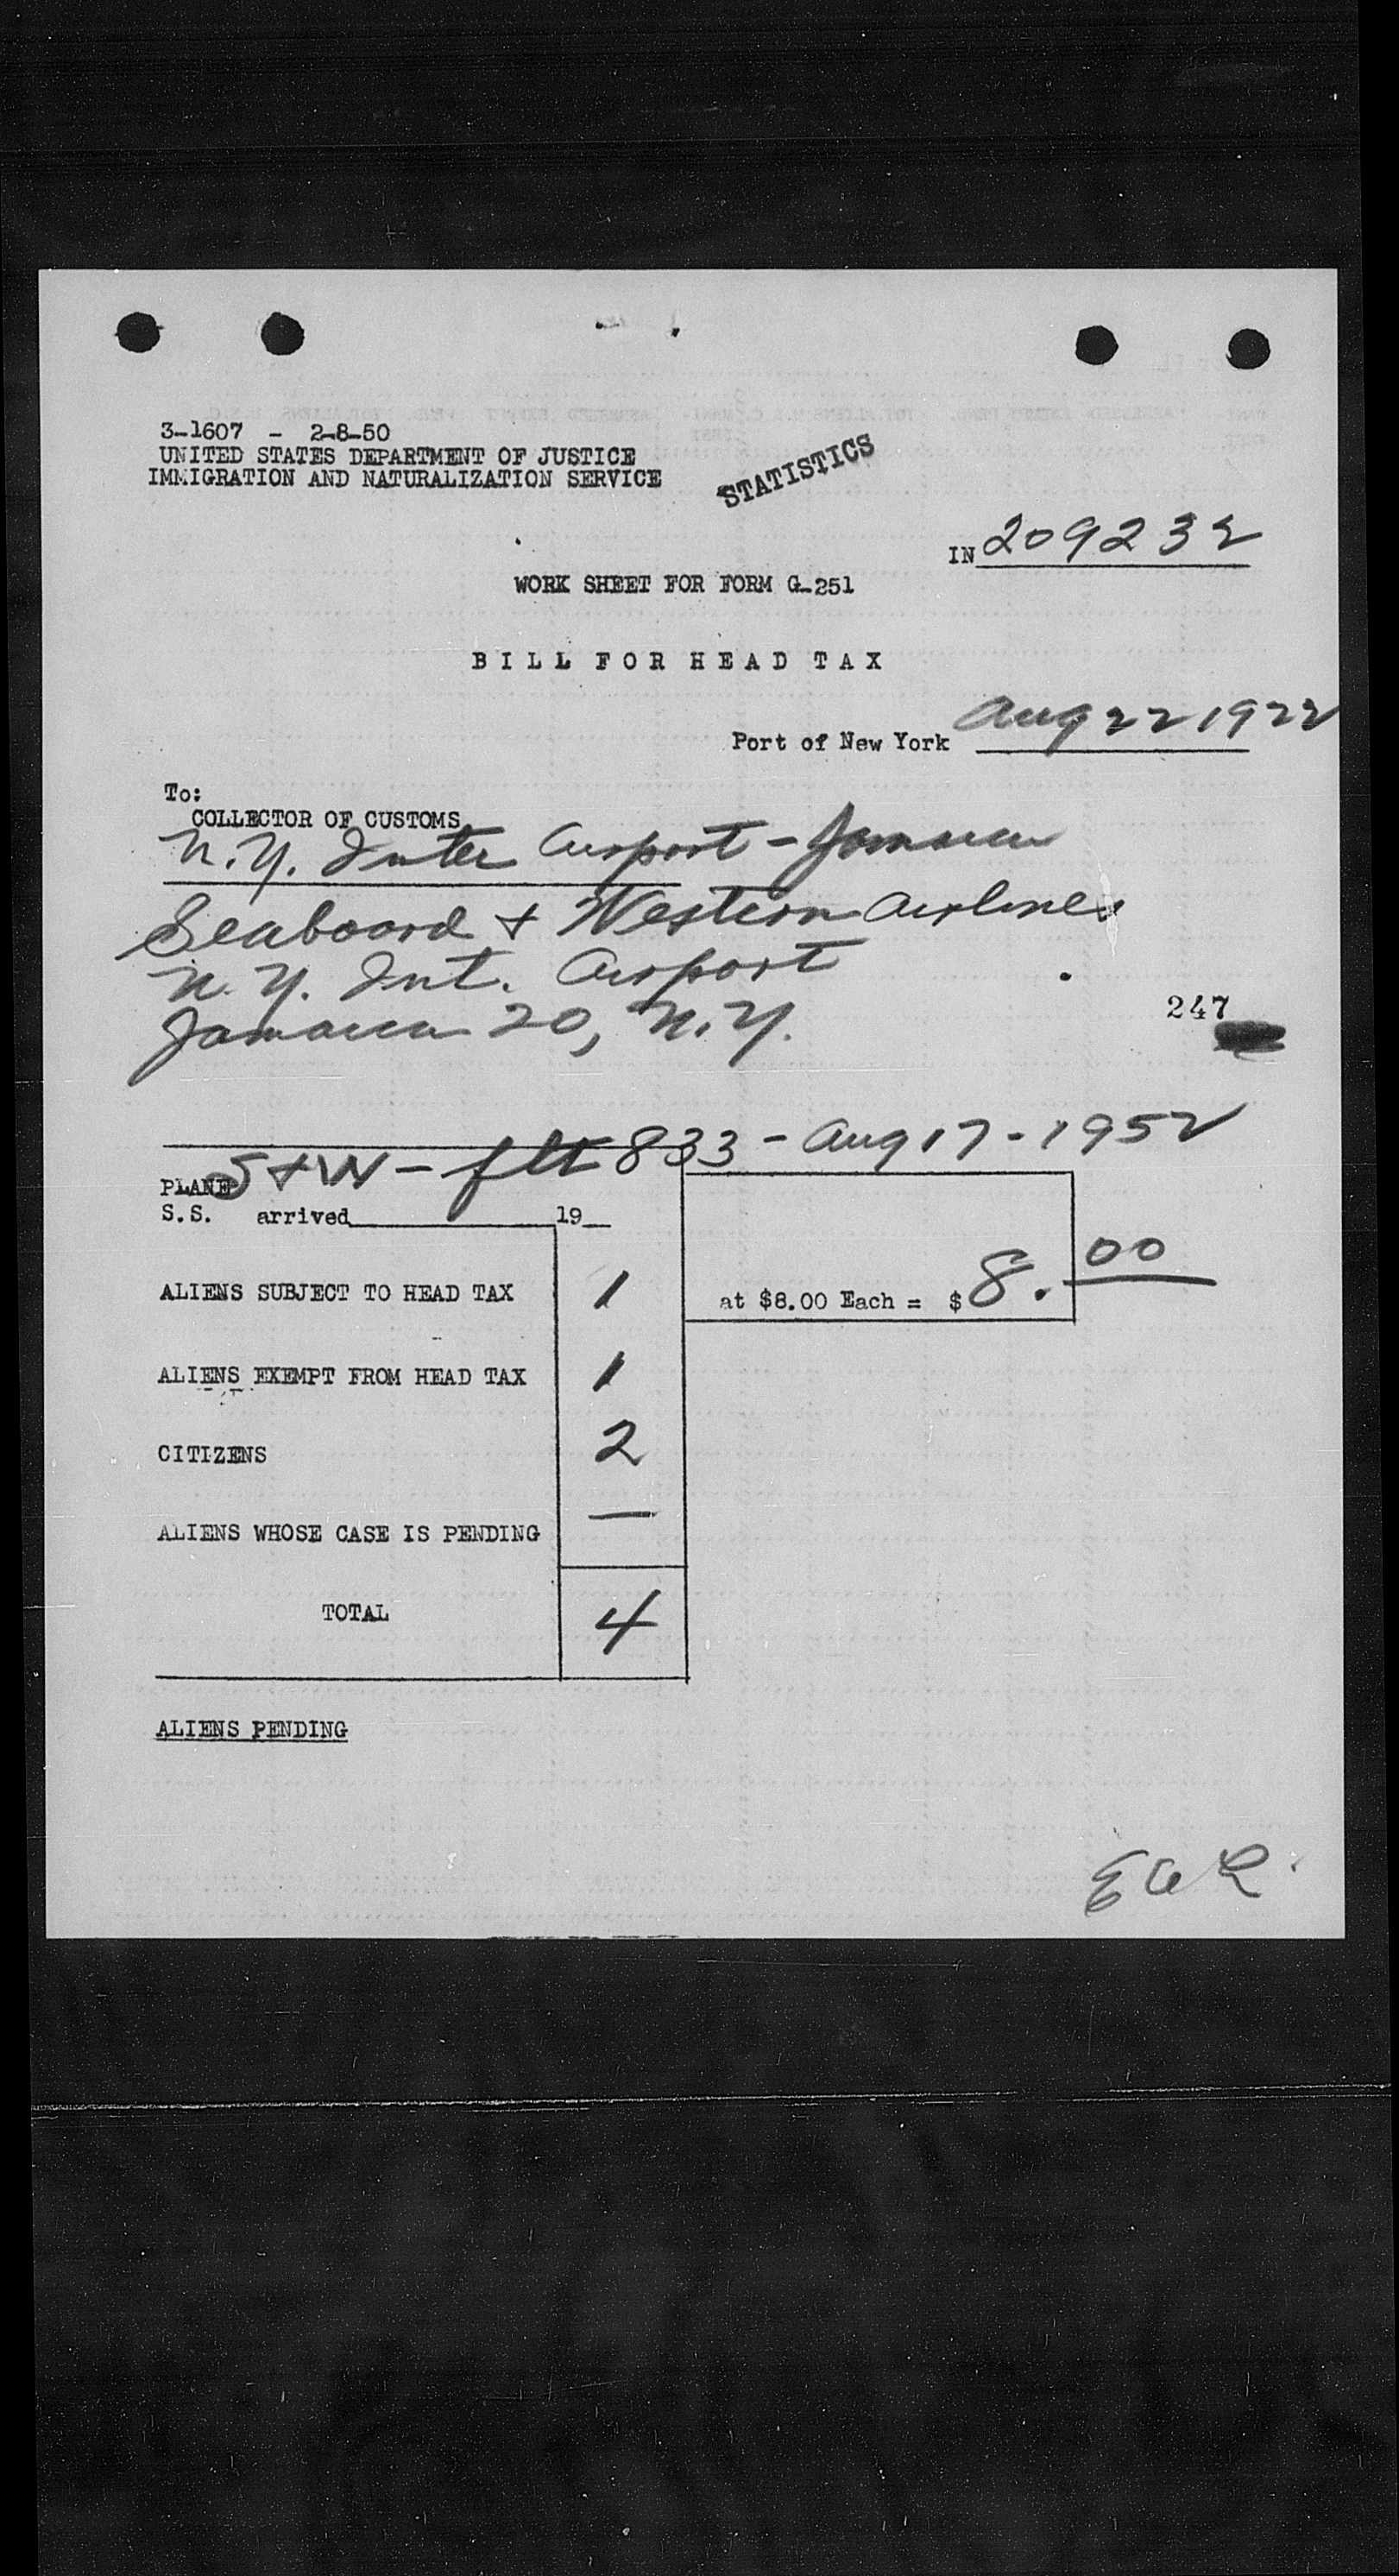 3-1607 - 2-8-50
UNITED STATES DEPARTMENT OF JUSTICE
IMMIGRATION AND NATURALIZATION SERVICE
STATISTICS
IN 209232
WORK SHEET FOR FORM G-251
BILL FOR HEAD TAX
Port of New York Aug 22 1922
To:
COLLECTOR OF CUSTOMS
N.Y. Inter Airport - Jamaica
Seaboard & Western Airlines
N.Y. Int. Airport
Jamaica 20, N.Y.
247
S & W - flt 833 - Aug 17 - 1952
PLANE
S.S. arrived 19
ALIENS SUBJECT TO HEAD TAX 1 at $8.00 Each = $ 8.00
ALIENS EXEMPT FROM HEAD TAX 1
CITIZENS 2
ALIENS WHOSE CASE IS PENDING —
TOTAL 4
ALIENS PENDING